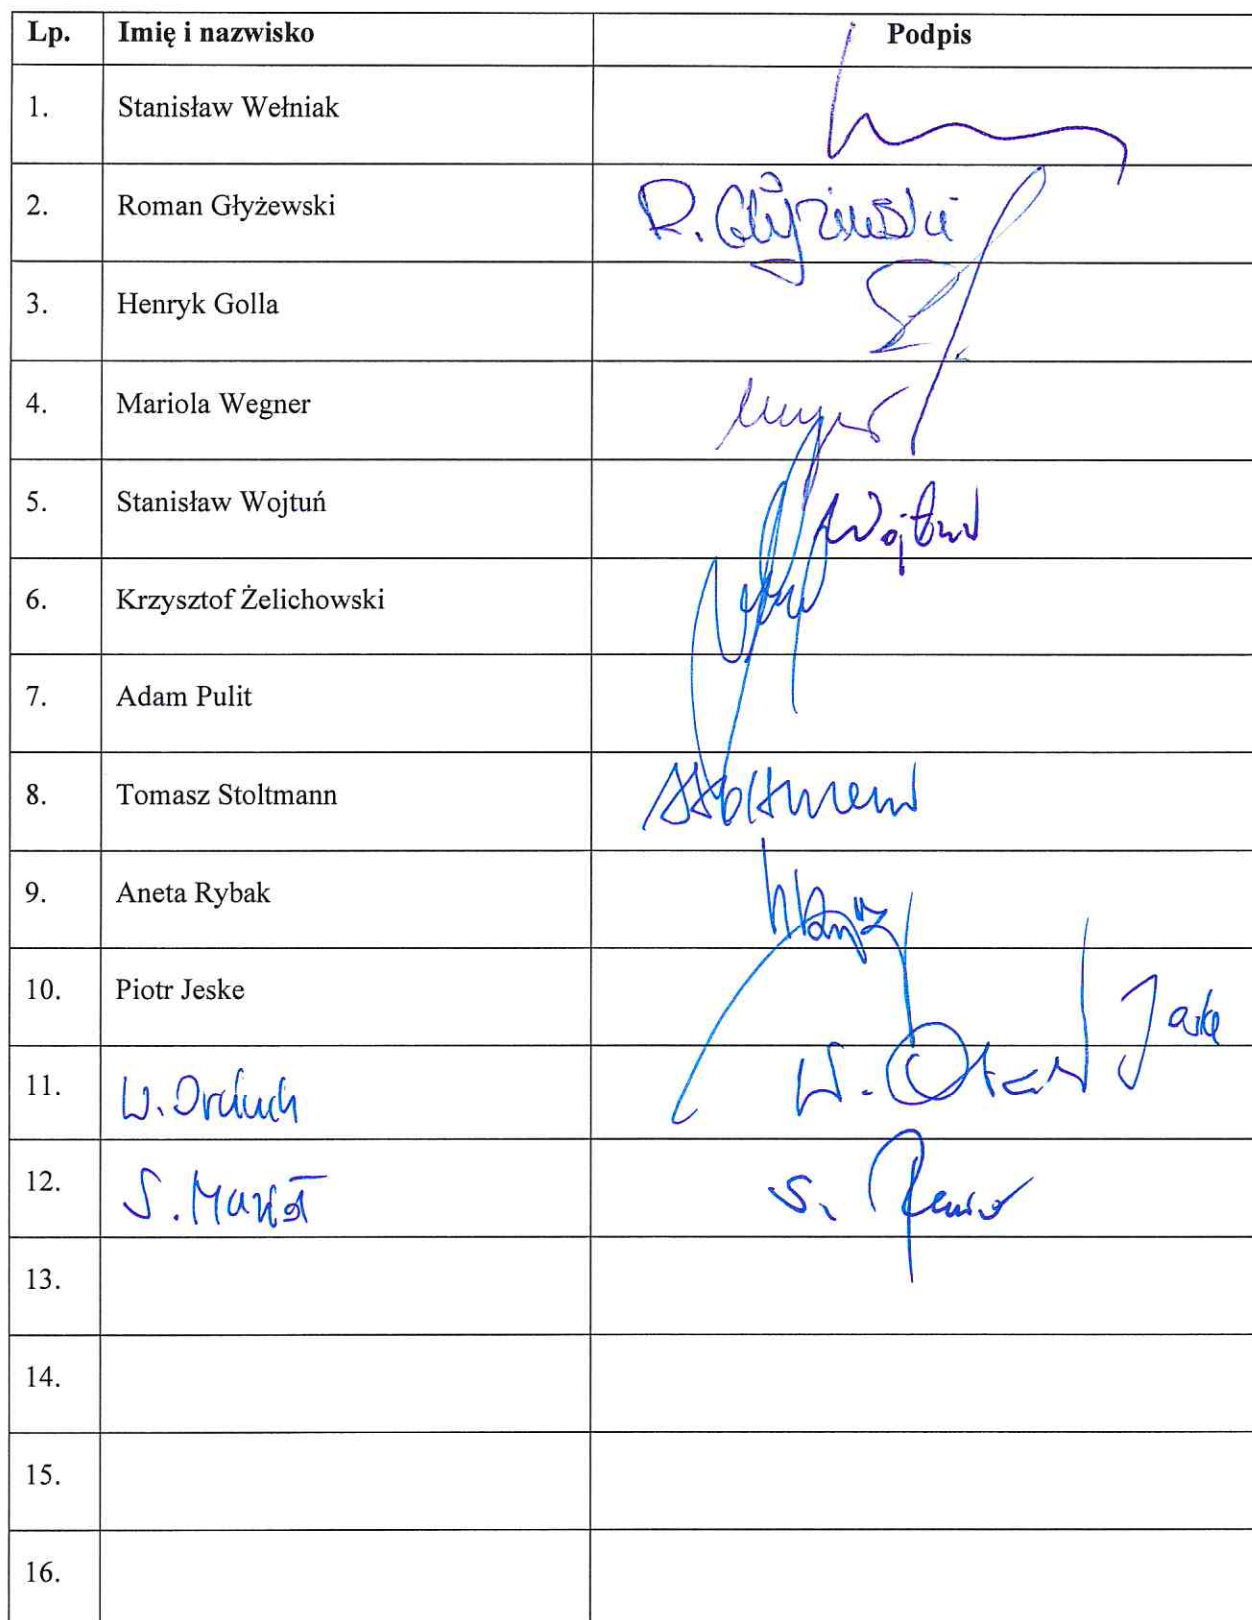 Lp. Imię i nazwisko Podpis
1. Stanisław Wełniak
2. Roman Głyżewski R. Głyżewski
3. Henryk Golla
4. Mariola Wegner
5. Stanisław Wojtuń Wojtuń
6. Krzysztof Żelichowski
7. Adam Pulit
8. Tomasz Stoltmann Stoltmann
9. Aneta Rybak
10. Piotr Jeske Jeske
11. W. W.
12. S. S.
13.
14.
15.
16.